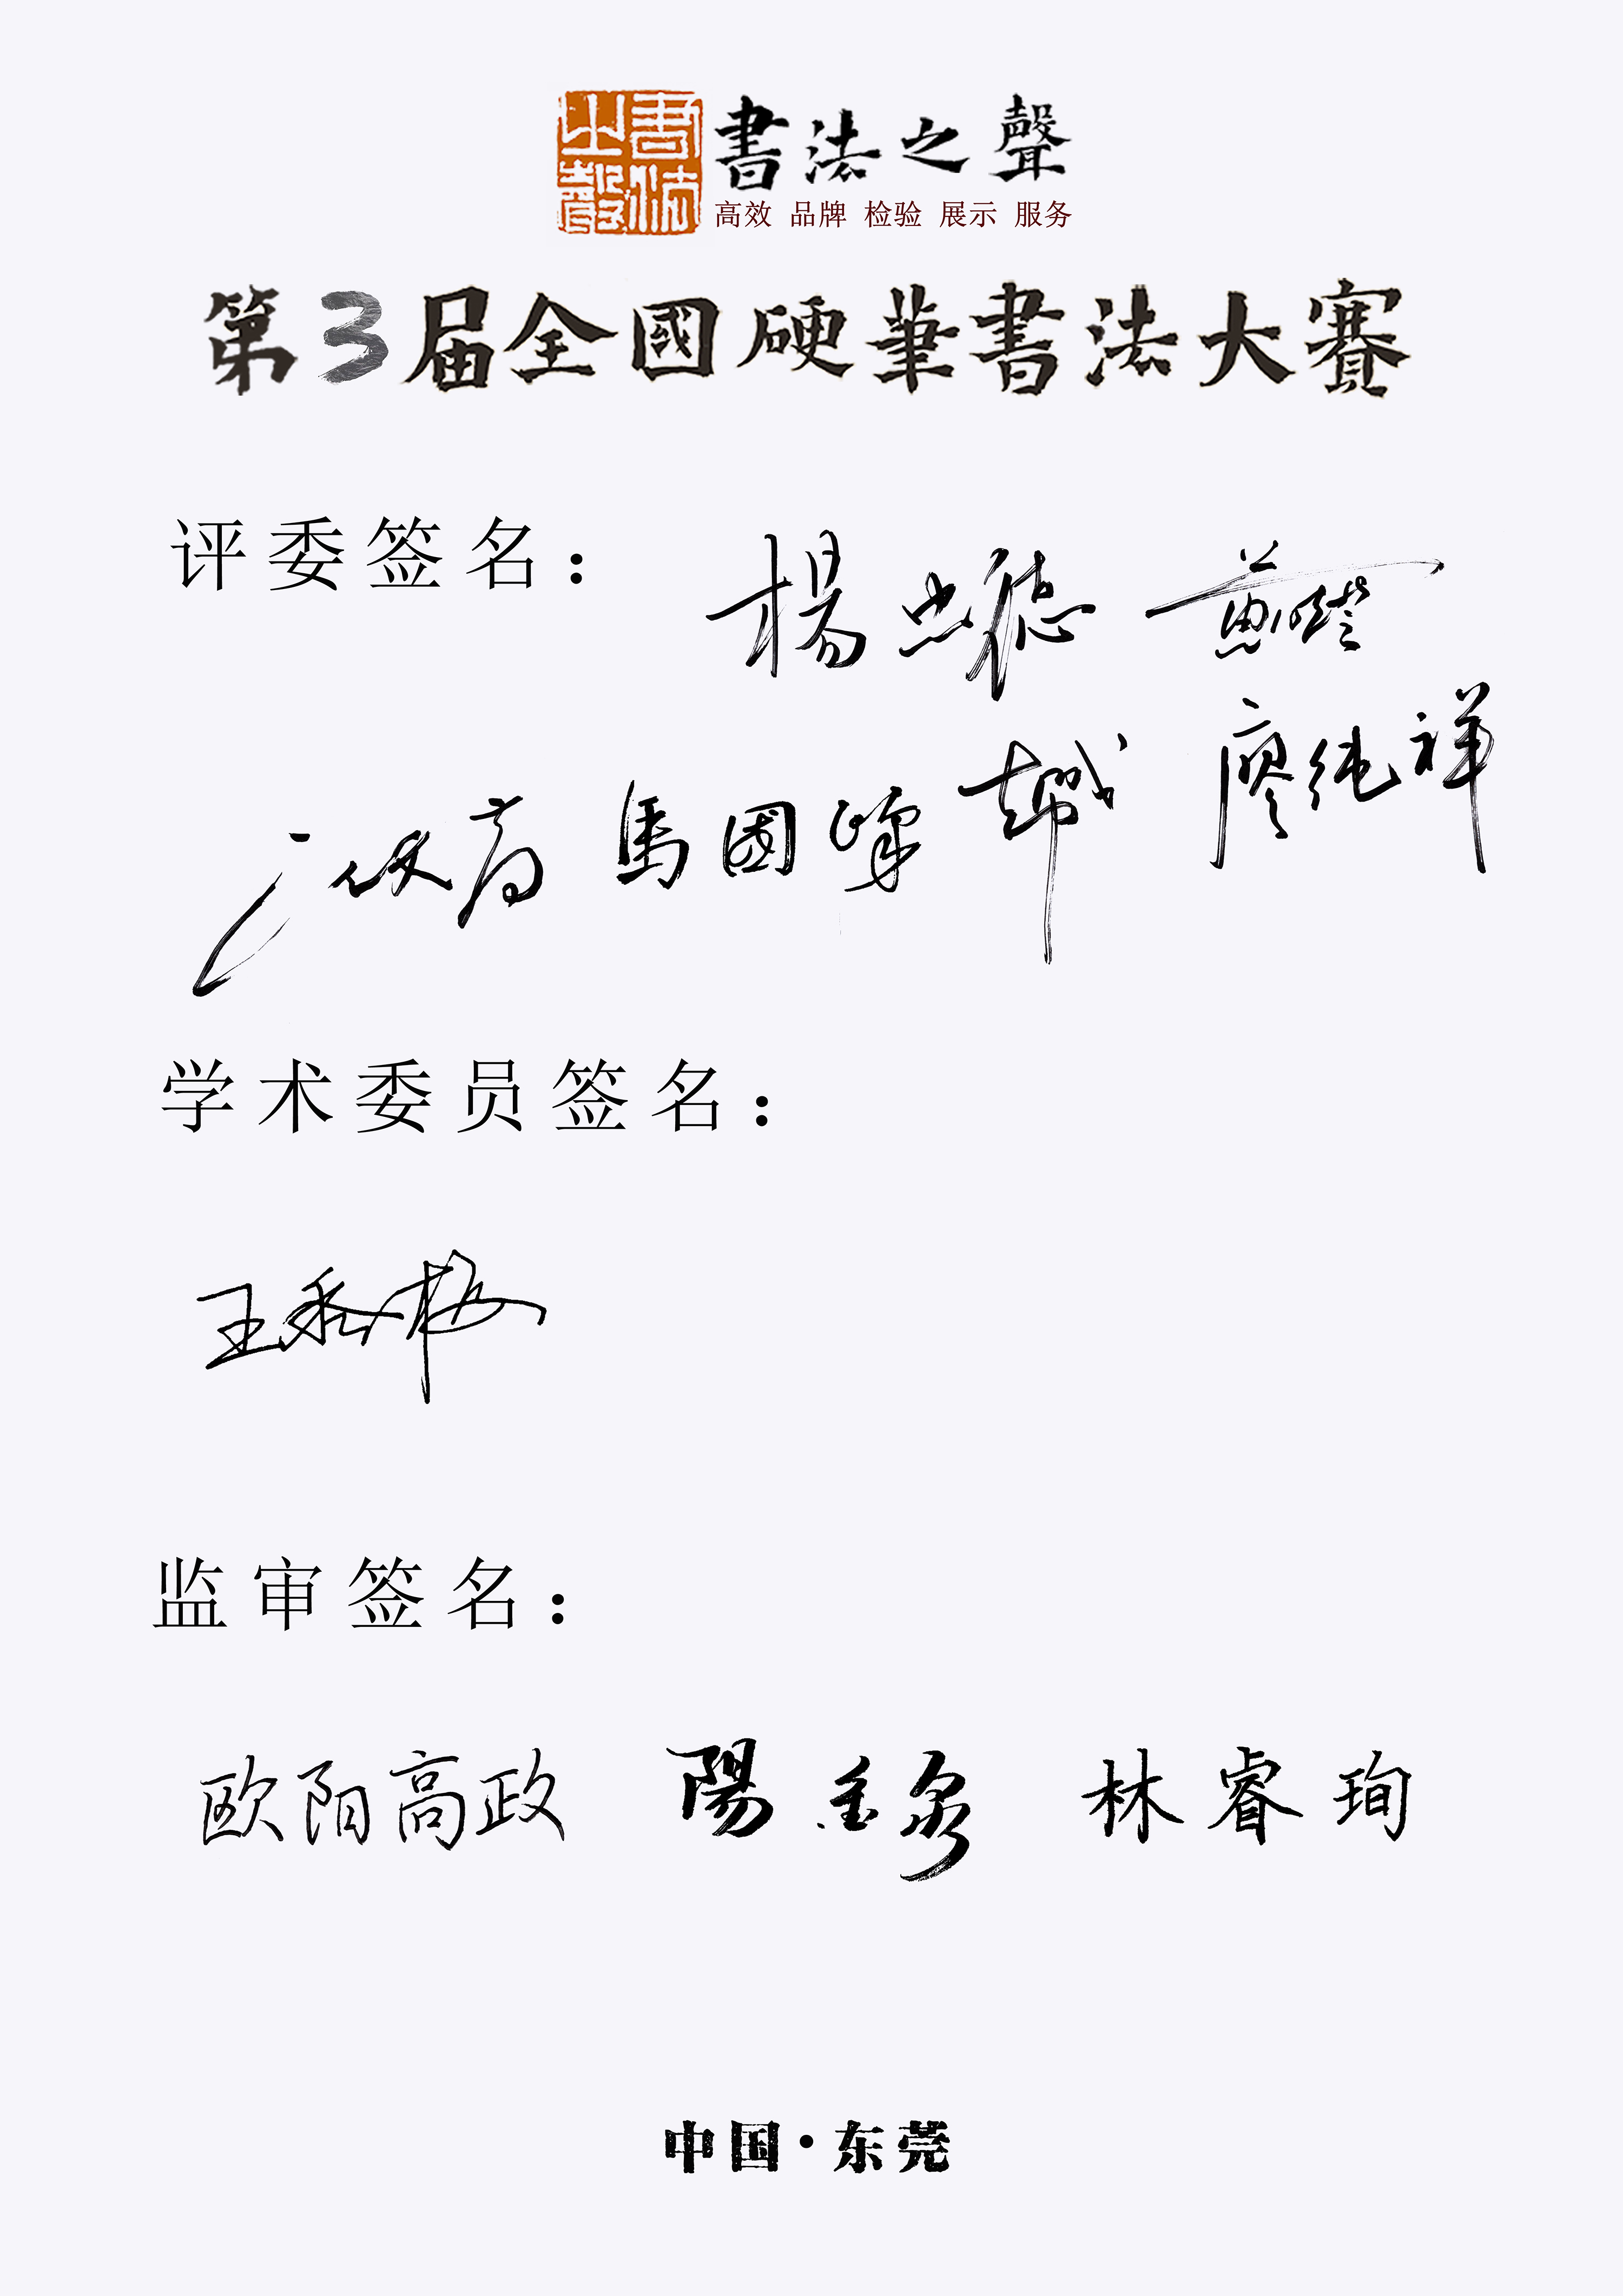 書法之聲
書法之聲
高效 品牌 检验 展示 服务
第3届全國硬筆書法大賽
评委签名：
楊忠德
馬國峰 廖纯祥
学术委员签名：
王香梅
监审签名：
欧阳高政 陽金泉 林睿珣
中国·东莞